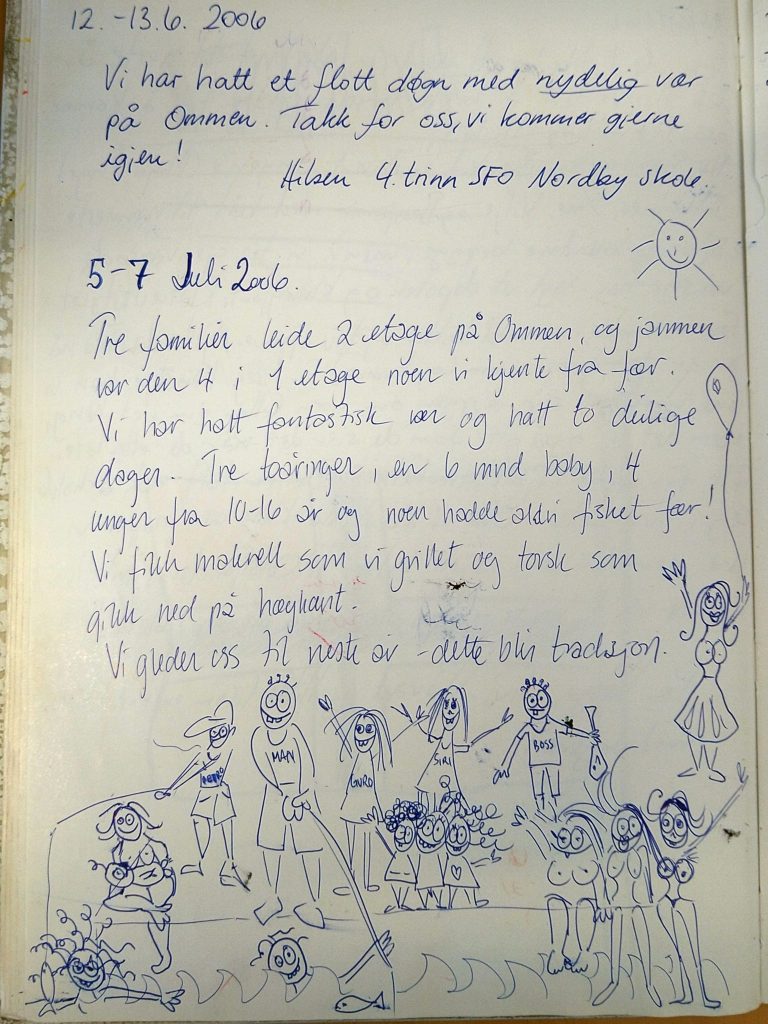 12.-13.6. 2006
Vi har hatt et flott døgn med nydelig vær
på Ommen. Takk for oss, vi kommer gjerne
igjen!
Hilsen 4. trinn SFO Nordby skole.
5-7 Juli 2006.
Tre familier leide 2 etage på Ommen, og jammen
var den 4 i 1 etage noen vi kjente fra før.
Vi har hatt fantastisk vær og hatt to deilige
dager. Tre toåringer, en 6 mnd baby, 4
unger fra 10-16 år og noen hadde aldri fisket før!
Vi fikk makrell som vi grillet og torsk som
gikk ned på høykant.
Vi gleder oss til neste år - dette blir tradisjon.
MAN
GURO
SIRI
BOSS